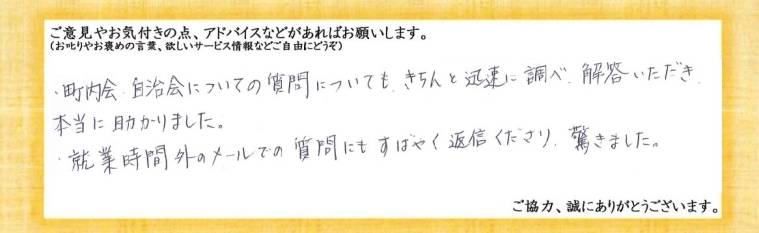 ご意見やお気付きの点、アドバイスなどがあればお願いします。
(お叱りやお褒めの言葉、欲しいサービス情報などご自由にどうぞ)
・町内会、自治会についての質問についても、きちんと迅速に調べ、解答いただき、
本当に助かりました。
・就業時間外のメールでの質問にもすばやく返信くださり、驚きました。
ご協力、誠にありがとうございます。